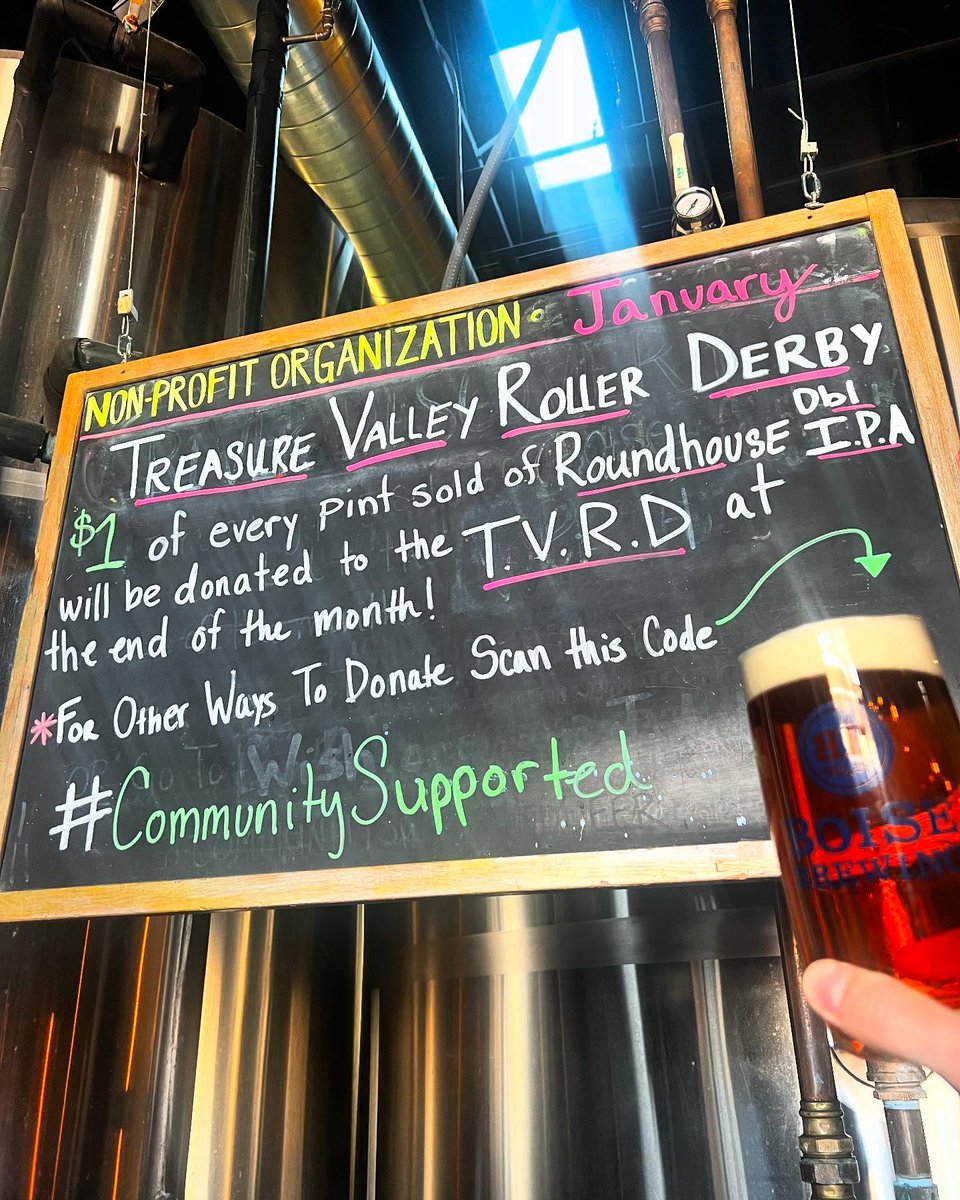 NON-PROFIT ORGANIZATION · January
TREASURE VALLEY ROLLER DERBY
$1 of every pint sold of Roundhouse Dbl I.P.A
will be donated to the T.V.R.D at
the end of the month!
*FOR OTHER WAYS TO DONATE SCAN this Code
#CommunitySupported
BOISE
BREWING